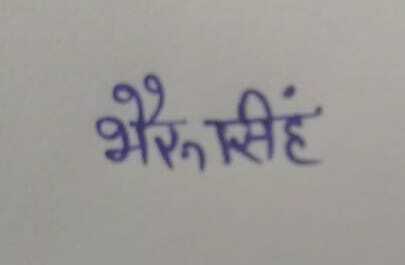 भैरू सिंह